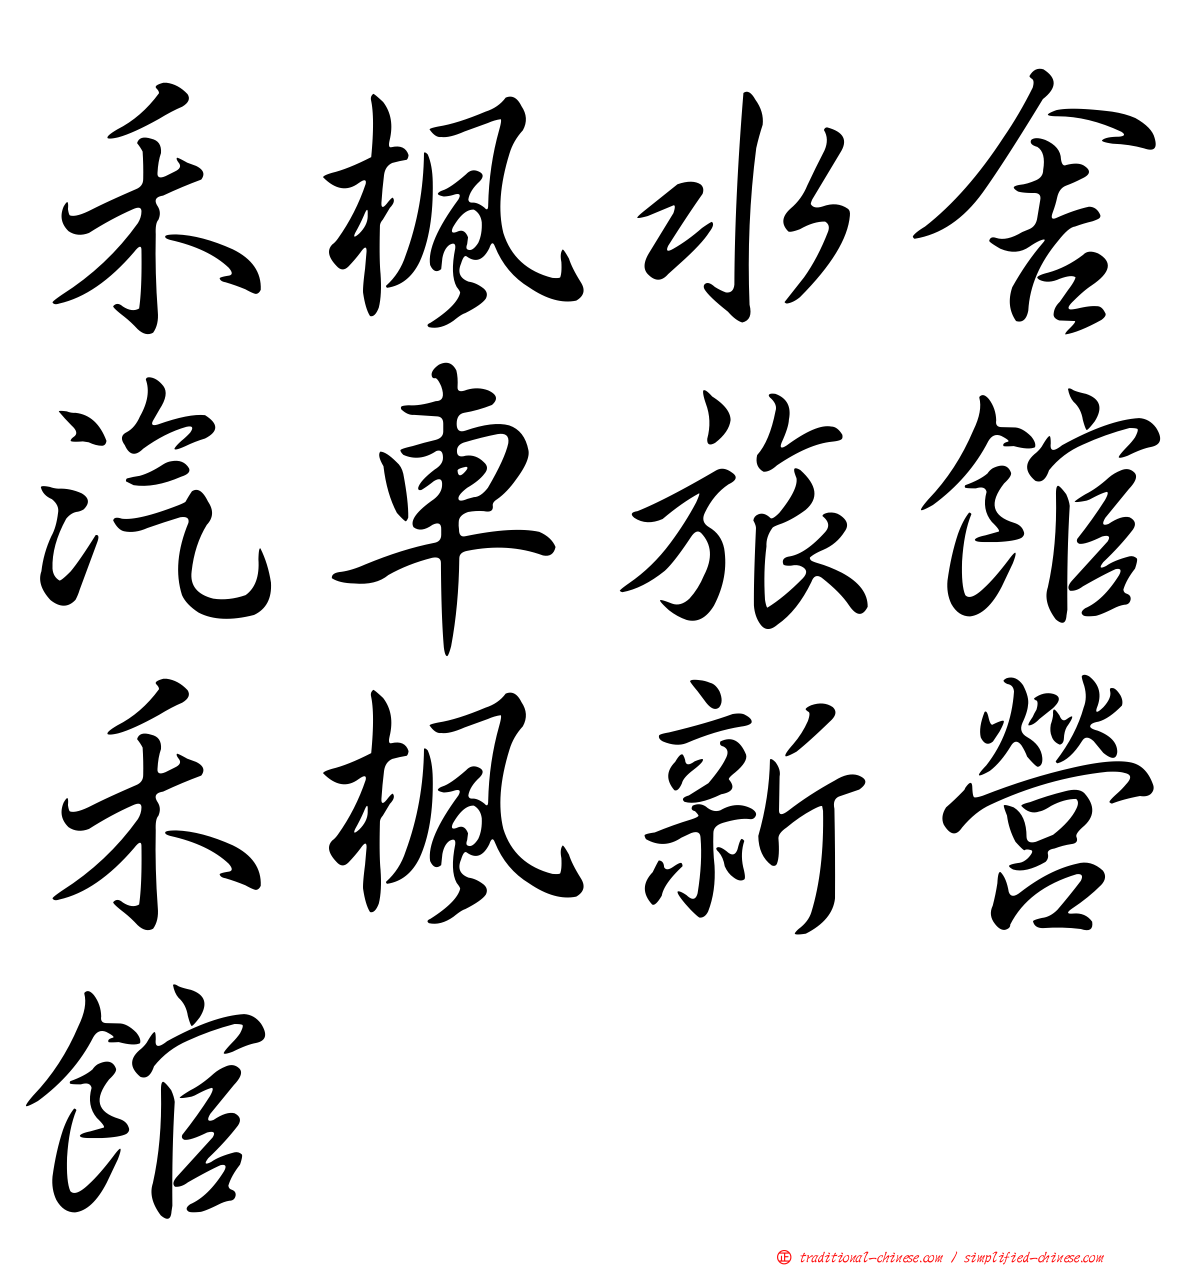 禾楓水舍
汽車旅館
禾楓新營
館
㊣ traditional-chinese.com / simplified-chinese.com